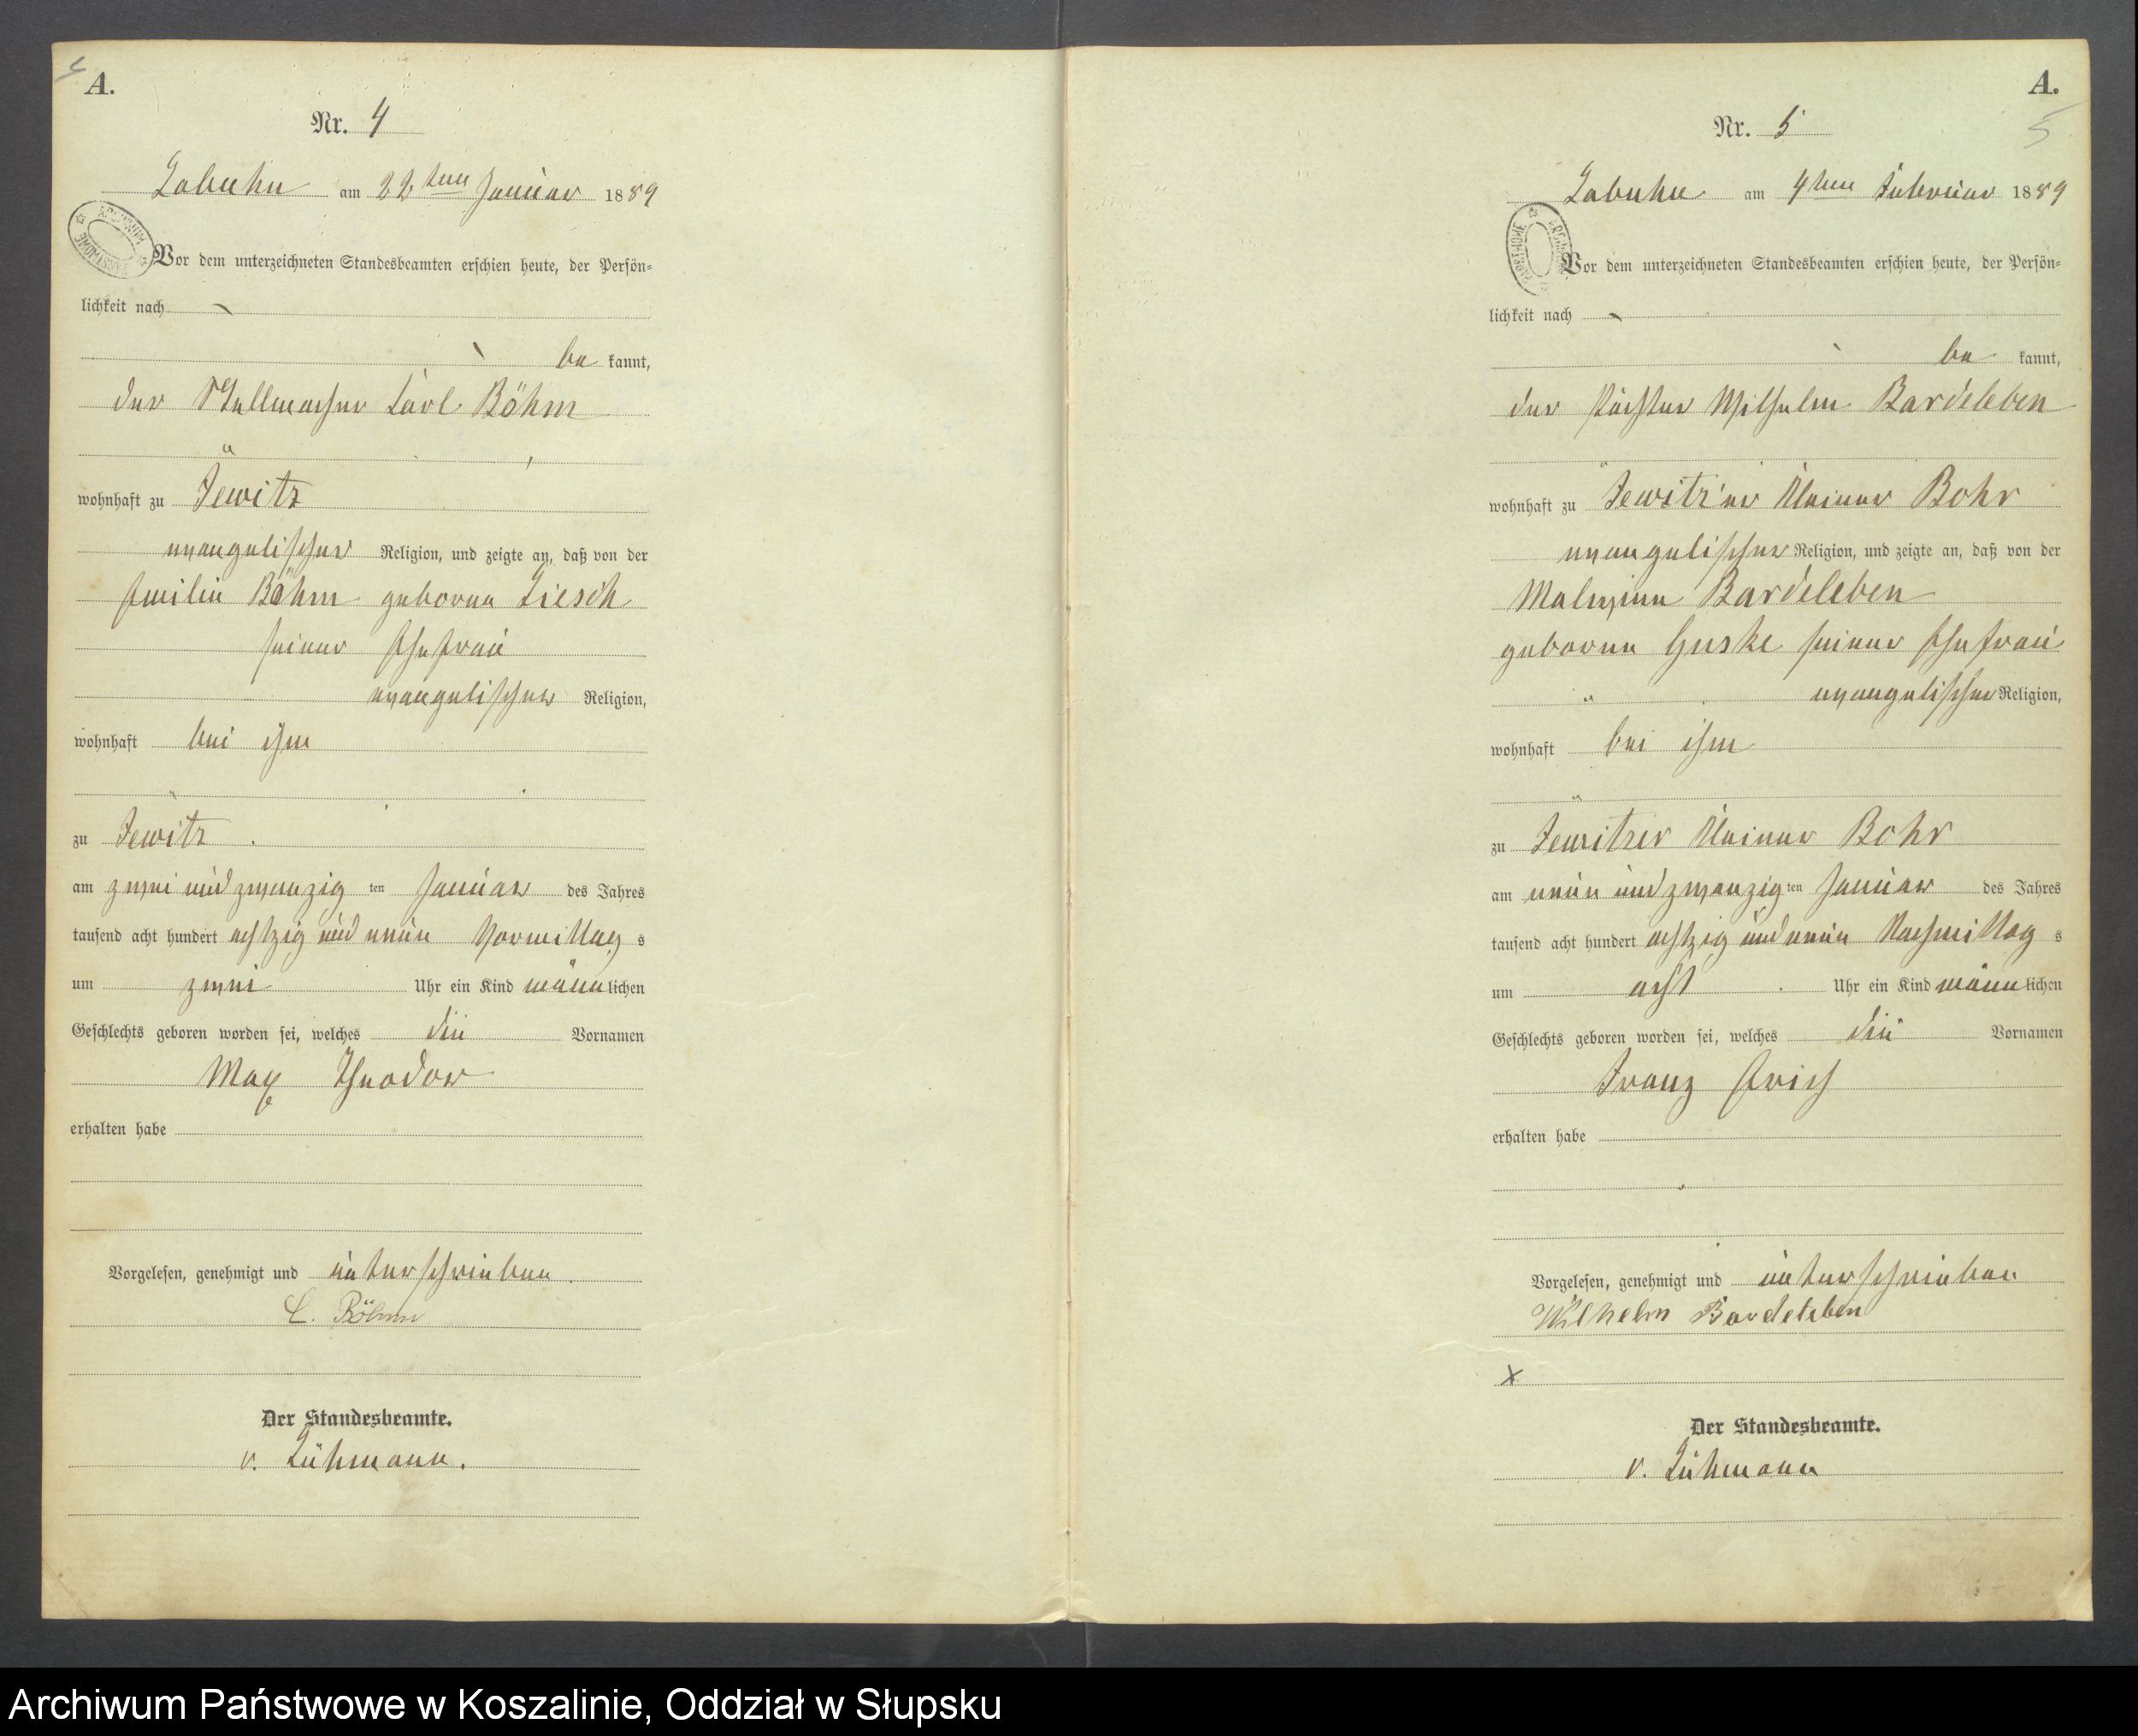 A.
Nr. 4
Labuhn am 22ten Januar 1889
Vor dem unterzeichneten Standesbeamten erschien heute, der Persön=
lichkeit nach
be kannt,
der Stellmacher Carl Böhm
wohnhaft zu Jewitz
evangelischer Religion, und zeigte an, daß von der
Emilie Böhm geborne Liesch
seiner Ehefrau
evangelischer Religion,
wohnhaft bei ihm
zu Jewitz
am zwei und zwanzig ten Januar des Jahres
tausend acht hundert achtzig und neun Vormittag s
um zwei Uhr ein Kind männlichen
Geschlechts geboren worden sei, welches die Vornamen
Max Theodor
erhalten habe
Vorgelesen, genehmigt und unterschrieben.
C. Böhm
Der Standesbeamte.
v. Lühmann.
A.
5
Nr. 5
Labuhn am 4ten Februar 1889
Vor dem unterzeichneten Standesbeamten erschien heute, der Persön=
lichkeit nach
be kannt,
der Pächter Wilhelm Bardeleben
wohnhaft zu Jewitz'er Bohr
evangelischer Religion, und zeigte an, daß von der
Malwine Bardeleben
geborne Guske seiner Ehefrau
evangelischer Religion,
wohnhaft bei ihm
zu Jewitzer Bohr
am neun und zwanzig ten Januar des Jahres
tausend acht hundert achtzig und neun Nachmittag s
um acht Uhr ein Kind männlichen
Geschlechts geboren worden sei, welches die Vornamen
Franz Erich
erhalten habe
Vorgelesen, genehmigt und unterschrieben
Wilhelm Bardeleben
x
Der Standesbeamte.
v. Lühmann
Archiwum Państwowe w Koszalinie, Oddział w Słupsku